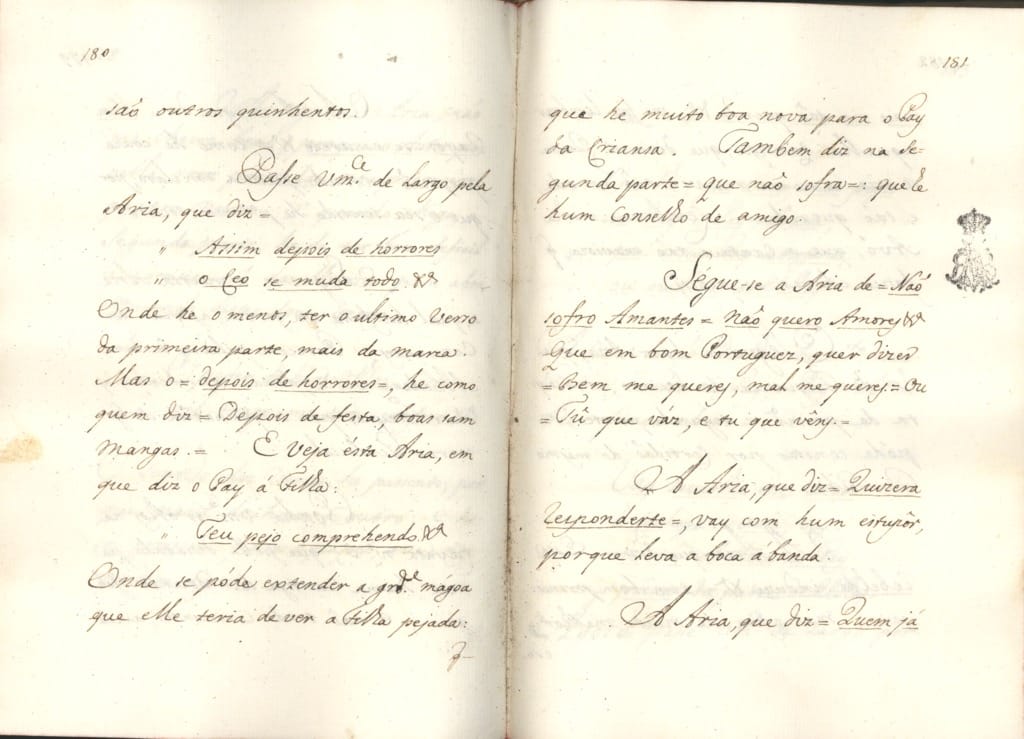 180
são outros quinhentos.
Passe Vm.ce de Largo pela
Aria, que diz=
" Assim depois de horrores
" o Ceo se muda todo &ª
Onde he o menos, ter o ultimo Verso
da primeira parte, mais da marca.
Mas o= depois de horrores=, he como
quem diz= Depois de festa, boas sam
mangas.= E Veja ésta Aria, em
que diz o Pay á Filha:
" Teu pejo comprehendo &ª
Onde se póde extender a grd.e mágoa
que elle teria de ver a Filha pejada:
181
que he muito boa nova para o Pay
da Criansa. Tambem diz na se-
gunda parte= que não sofra=: que he
hum Conselho de amigo.
Ségue-se a Aria de= Não
sofro Amantes= Não quero Amores &ª
Que em bom Portuguez, quer dizer
= Bem me queres, mal me queres.= Ou
= Tû que váz, e tu que vêns.=
A Aria, que diz= Quizera
responderte=, vay com hum estupôr,
porque leva a boca á banda.
A Aria, que diz= Quem já